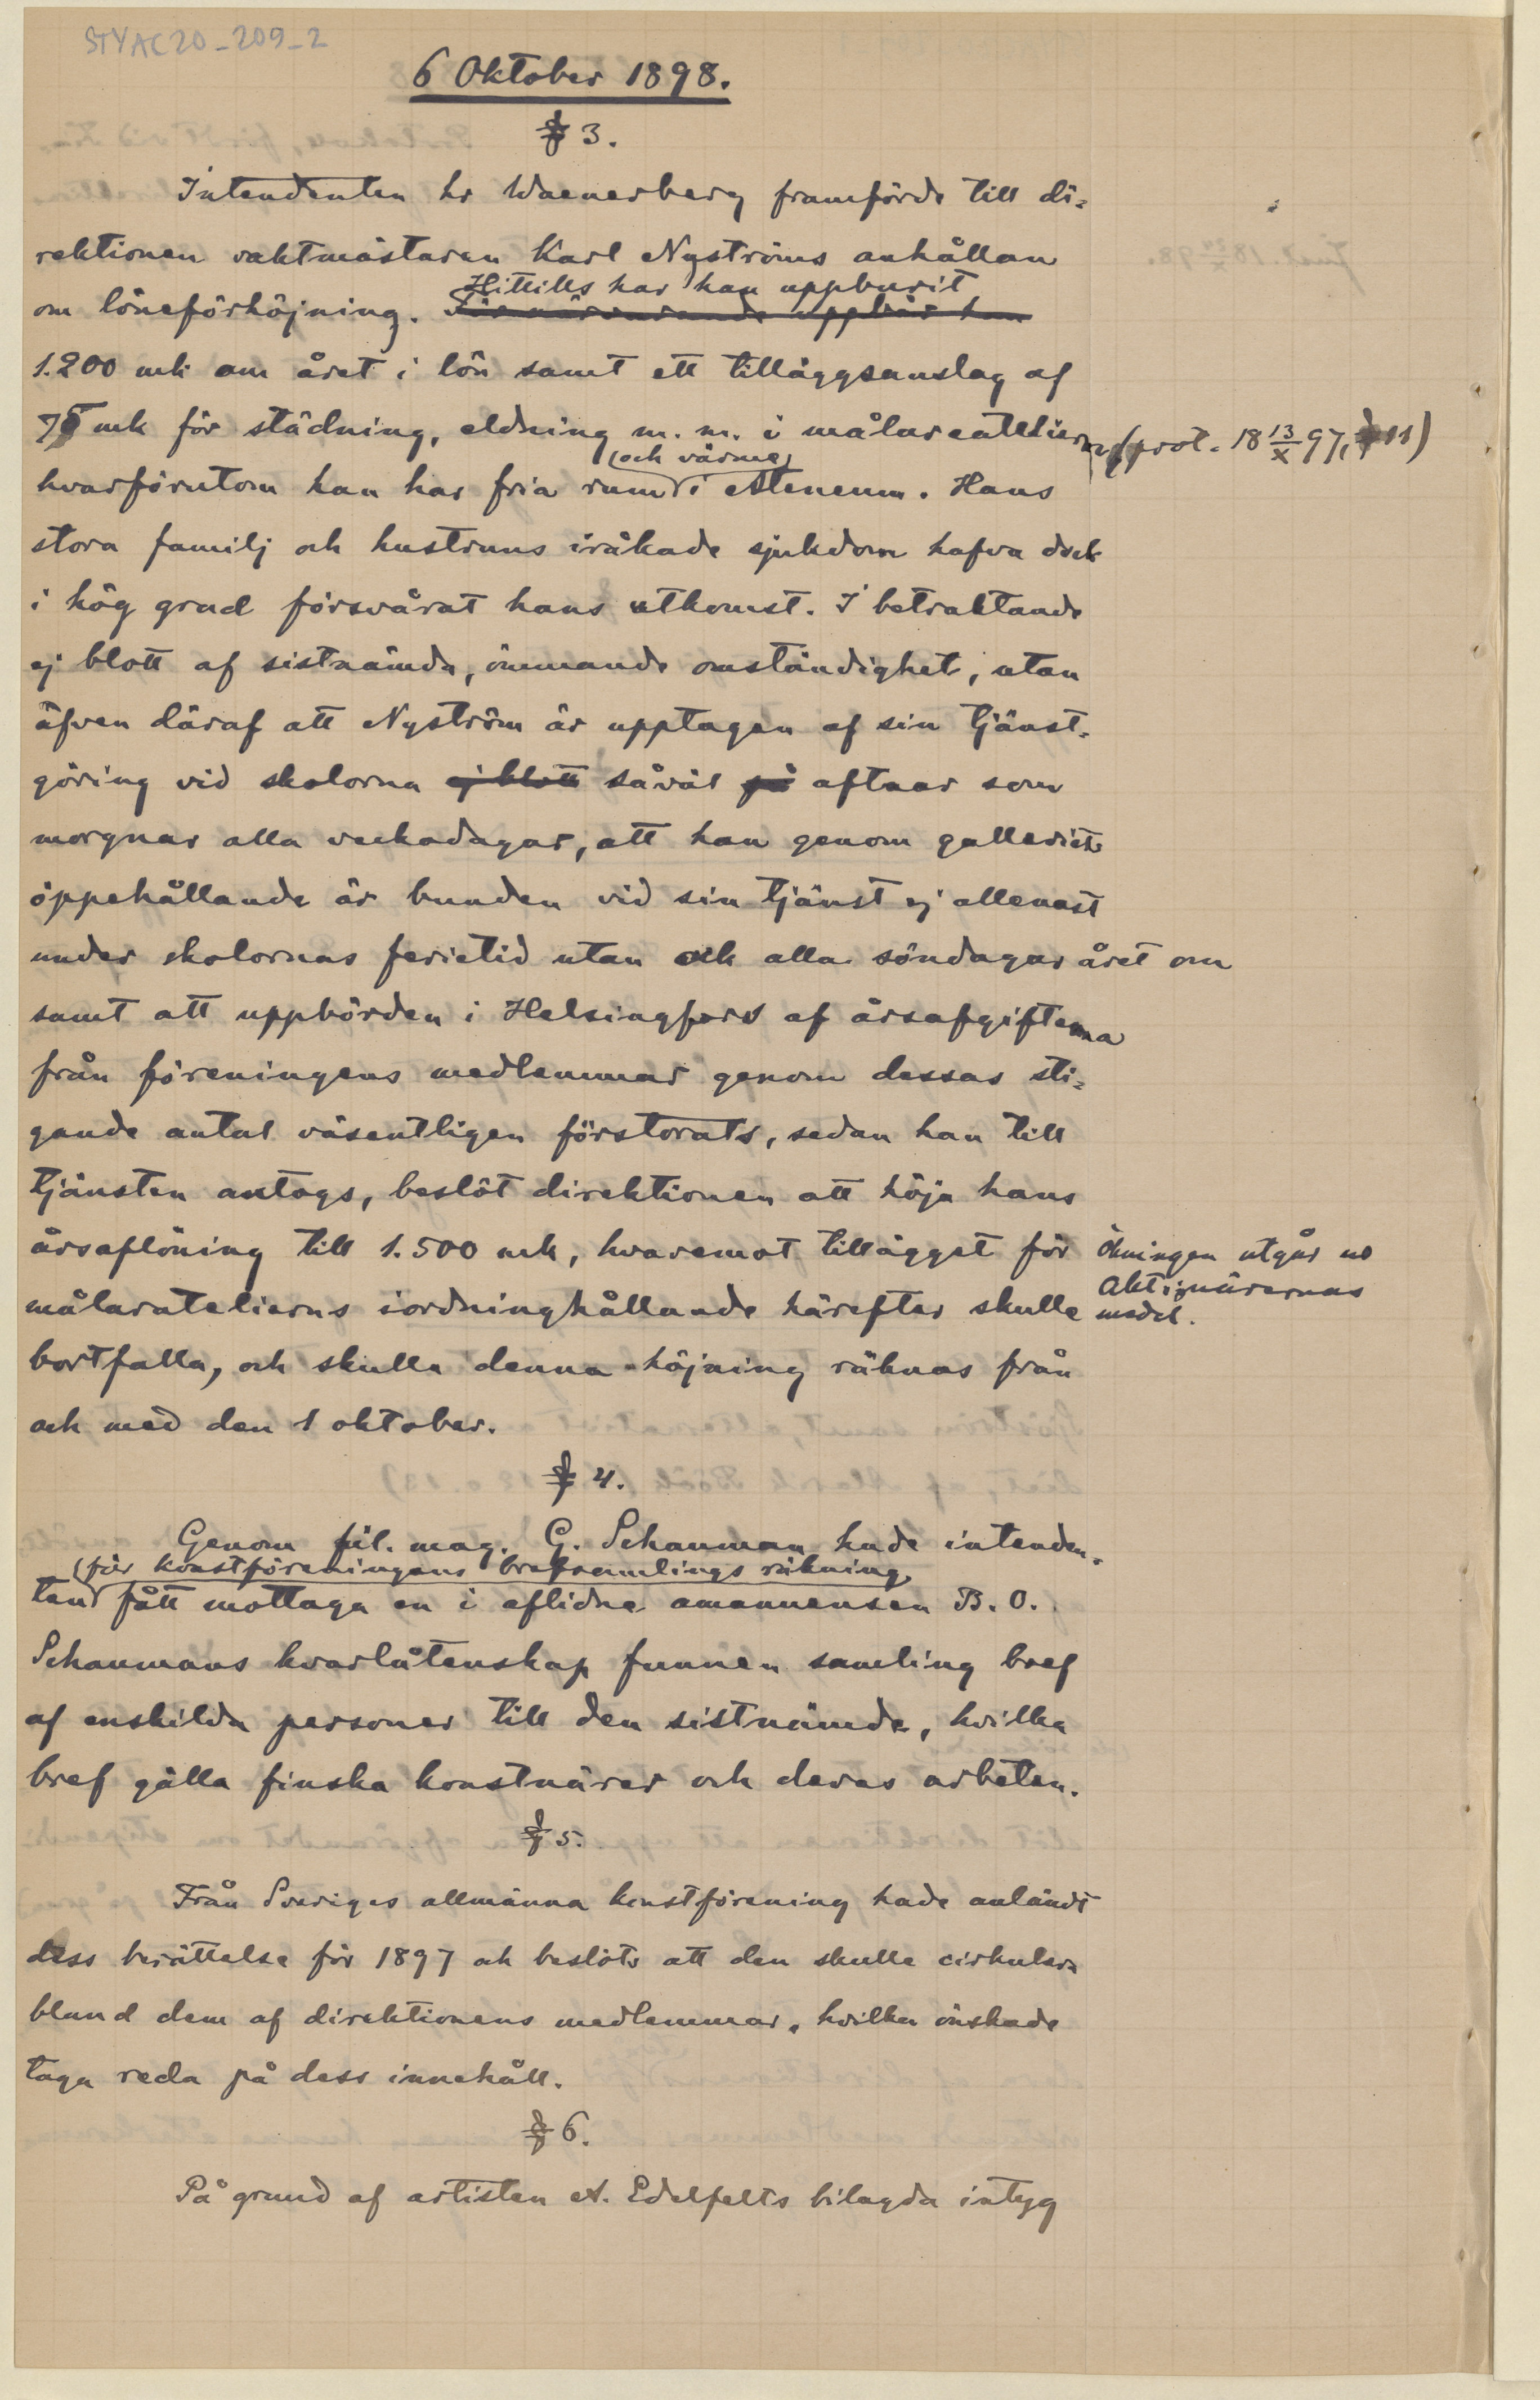 STYAC20_209_2
6 Oktober 1898.
§ 3.
Intendenten hr Waenerberg framförde till di-
rektionen vaktmästaren Karl Nyströms anhållan
Hittills har han uppburit
om löneförhöjning. För närvarande uppbär han
1.200 mk om året i lön samt ett tilläggsanslag af
75 mk för städning, eldning m. m. i målareateliern (prot. 18 13/X 97, § 11)
(och värme)
hvarförutom han har fria rum i Ateneum. Hans
stora familj och hustruns iråkade sjukdom hafva dock
i hög grad försvårat hans utkomst. I betraktande
ej blott af sistnämda, ömmande omständighet, utan
äfven däraf att Nyström är upptagen af sin tjänst-
göring vid skolorna ej blott såväl på aftnar som
morgnar alla veckodagar, att han genom galleriets
öppehållande är bunden vid sin tjänst ej allenast
under skolornas ferietid utan ock alla söndagar året om
samt att uppbörden i Helsingfors af årsafgifterna
från föreningens medlemmar genom dessas sti-
gande antal väsentligen förstorats, sedan han till
tjänsten antogs, beslöt direktionen att höja hans
årsaflöning till 1.500 mk, hvaremot tillägget för
ökningen utgår ur
aktionärernas
medel.
målarateliers iordninghållande härefter skulle
bortfalla, och skulle denna höjning räknas från
och med den 1 oktober.
§ 4.
Genom fil. mag. G. Schauman hade intenden-
(för konstföreningens brefsamlings räkning)
ten fått mottaga en i aflidne amanuensen B. O.
Schaumans kvarlåtenskap funnen samling bref
af enskilda personer till den sistnämde, hvilka
bref gälla finska konstnärer och deras arbeten.
§ 5.
Från Sveriges allmänna konstförening hade anländt
dess berättelse för 1897 och beslöts att den skulle cirkulera
bland dem af direktionens medlemmar, hvilka önskade
taga reda på dess innehåll.
§ 6.
På grund af artisten A. Edelfelts bilagda intyg